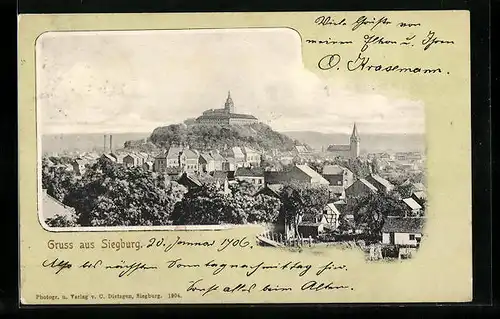 Viele Grüsse von
meinen Eltern u. Ihrem
O. Krasemann.
Gruss aus Siegburg, 20. Januar 1906,
Also bis nächsten Sonntagnachmittag hin.
Sonst alles beim Alten.
Photogr. u. Verlag v. C. Dietzgen, Siegburg. 1904.